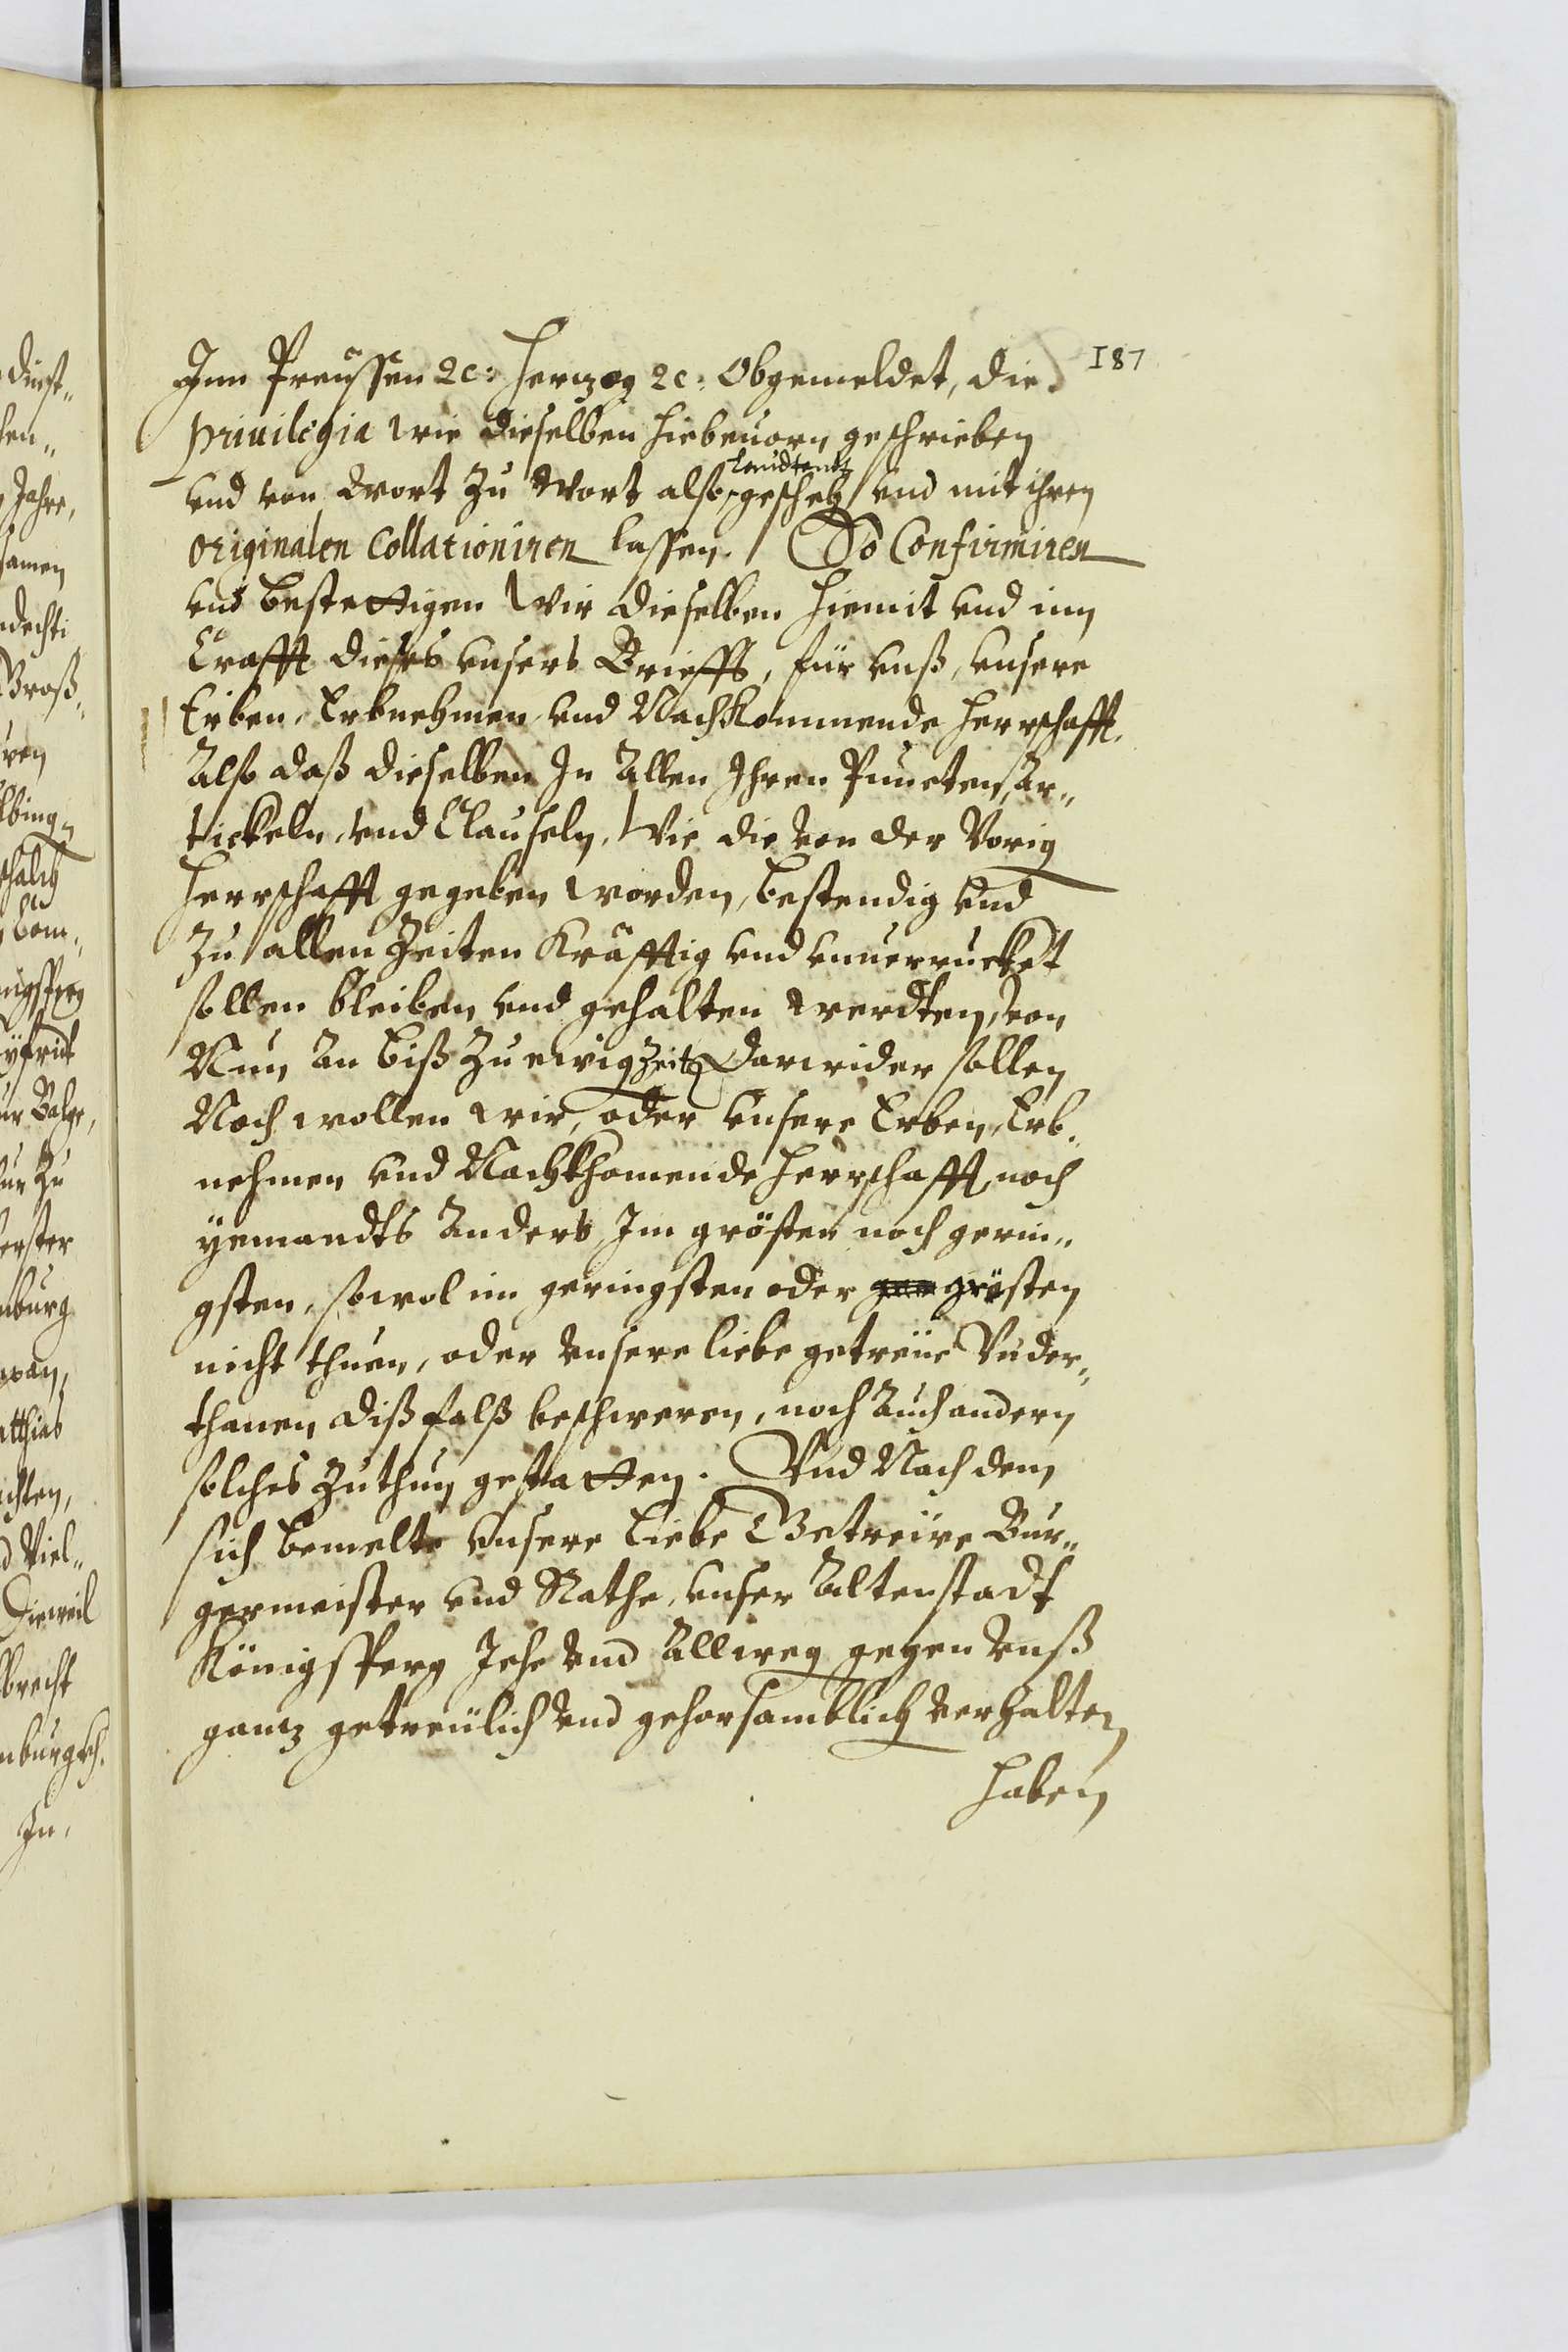 187
Inn Preussen ꝛc: Hertzog ꝛc: Obgemeldet, die
priuilegia wie dieselben hiebeuorn geschrieben
lautendt
vnd von Wort zu Wort also geseh[en] vnd mit ihren
originalen Collationiren lassen. So Confirmiren
vnd bestettigen Wir dieselben hiemit vnd inn
Crafft dieses vnsers Brieffs, für vnß, vnsere
Erben, Erbnehmen vnd Nachkommende Herrschafft.
Also daß dieselben In Allen Ihren Puncten, Ar„
tickeln, vnd Clauseln, Wie die von der Vorig
Herrschafft gegeben worden, bestendig vnd
Zu allen Zeiten Kräfftig vnd vnuerrucket
sollen bleiben vnd gehalten werdten, von
Nun An biß zu ewig Zeit Darwider sollen
Noch wollen wir, oder vnsere Erben, Erb„
nehmen vnd Nachkhomende Herrschafft noch
yemandts Anders, Im grösten noch gerin„
gsten, sowol im geringsten oder grösten
nicht thuen, oder vnsere liebe getreüe Vnder„
thanen dißfalß beschweren, noch Auch andern
solches zuthun gestatten. Vnd Nach dem
sich bemelte vnsere liebe Getreüe Bur„
germeister vnd Rathe, vnser Altenstadt
Königsperg Jehe vnd Allweg gegen vnß
gantz getreülich vnd gehorsamblich verhalten
haben